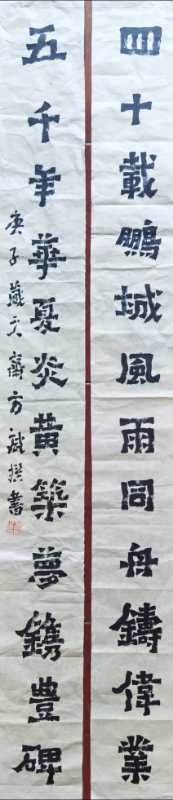 四十載鵬城風雨同舟鑄偉業
五千年華夏炎黃築夢鐫豐碑
庚子歲文齋方斌撰書